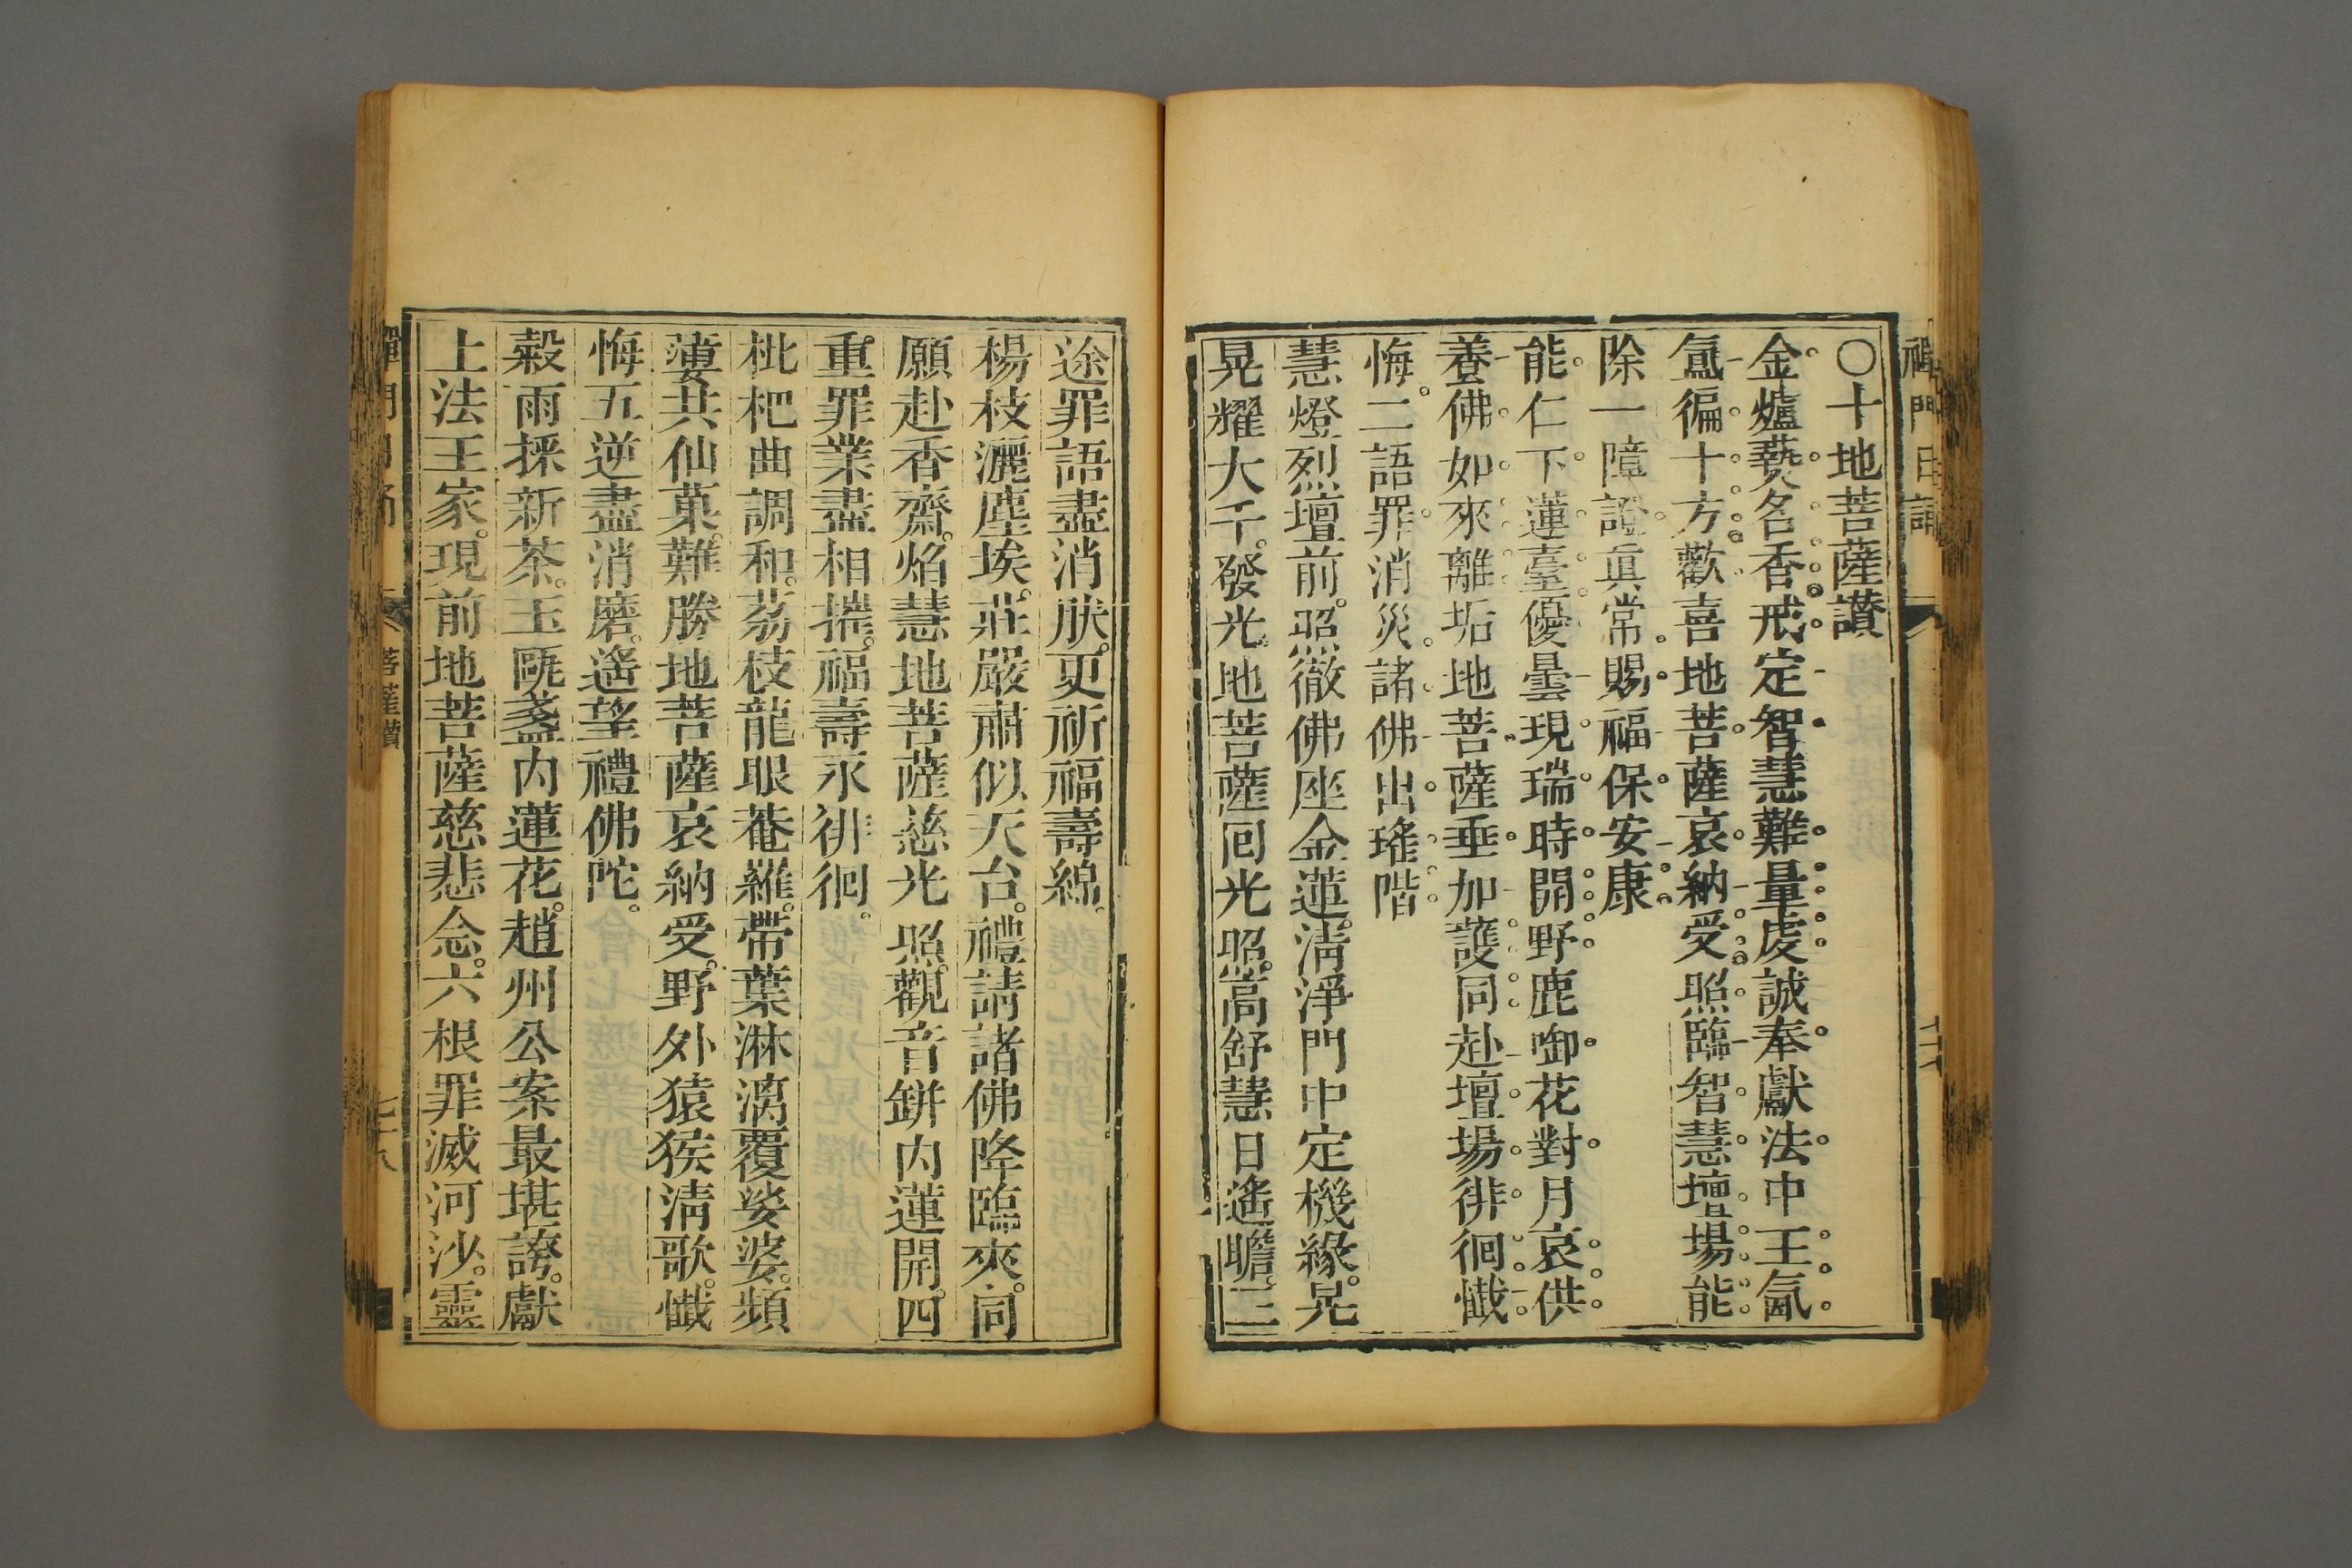 禪門日誦
〇十地菩薩讚
金爐爇名香戒定智慧難量虔誠奉獻法中王氤
氳徧十方歡喜地菩薩哀納受照臨智慧壇場能
除一障證眞常賜福保安康
能仁下蓮臺優曇現瑞時開野鹿啣花對月哀供
養佛如來離垢地菩薩垂加護同赴壇場徘徊懺
悔二語罪消災諸佛出瑤階
慧燈烈壇前照徹佛座金蓮淸淨門中定機緣晃
晃耀大千發光地菩薩囘光照高舒慧日遙瞻三
途罪語盡消朕更祈福壽綿
楊枝灑塵埃莊嚴肅似天台禮請諸佛降臨來同
願赴香齋焰慧地菩薩慈光照觀音缾內蓮開四
重罪業盡相摧福壽永徘徊
枇杷曲調和荔枝龍眼菴羅帶葉淋漓覆娑婆頻
蔞共仙菓難勝地菩薩哀納受野外猿猴淸歌懺
悔五逆盡消磨遙望禮佛陀
穀雨採新茶玉甌盞內蓮花趙州公案最堪誇獻
上法王家現前地菩薩慈悲念六根罪滅河沙靈
禪門日誦 菩薩讚 七十八